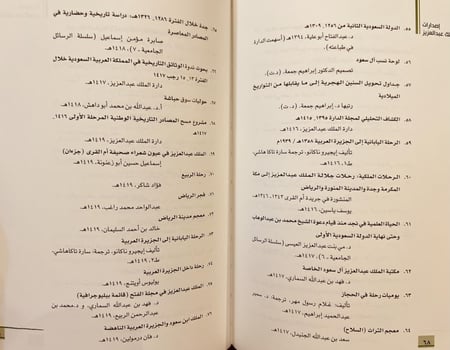 إصدارات
٥٥. الدولة السعودية الثانية من ١٢٥٦ـ ١٣٠٩هـ
د.عبدالفتاح أبوعلية، ١٣٩٤هـ (أسهمت الدارة
في طباعته).
٥٦. لوحة نسب آل سعود
تصميم الدكتور إبراهيم جمعة. (د.ت)
٥٧. جداول تحويل السنين الهجرية إلى ما يقابلها من التواريخ
الميلادية
رتبها د.إبراهيم جمعة، (د.ت)
٥٨. الكشاف التحليلي لمجلة الدارة ١٣٩٥ـ ١٤١٥هـ
دارة الملك عبدالعزيز، ١٤١٧هـ.
٥٩. الرحلة اليابانية إلى الجزيرة العربية ١٣٥٨هـ / ١٩٣٩م
تأليف إيجيرو ناكانو، ترجمة: سارة تاكاهاشي،
ط١، ١٤١٦هـ.
٦٠. الرحلات الملكية: رحلات جلالة الملك عبدالعزيز إلى مكة
المكرمة وجدة والمدينة المنورة والرياض
المنشورة في جريدة أم القرى ١٣٤٣ـ ١٣٤٦هـ
يوسف ياسين، ١٤١٦هـ.
٦١. الحياة العلمية في نجد منذ قيام دعوة الشيخ محمد بن عبدالوهاب
وحتى نهاية الدولة السعودية الأولى
د.مي بنت عبدالعزيز العيسى (سلسلة الرسائل
الجامعية ـ ٦)، ١٤١٧هـ.
٦٢. مكتبة الملك عبدالعزيز آل سعود الخاصة
د. فهد بن عبدالله السماري، ١٤١٧هـ.
٦٣. يوميات رحلة في الحجاز
تأليف: غلام رسول مهر، ترجمة: د. سمير
عبدالحميد إبراهيم، ١٤١٧هـ.
٦٤. معجم التراث (السلاح)
سعد بن عبدالله الجنيدل، ١٤١٧هـ.
٦٨
٦٥. جدة خلال الفترة ١٢٨٦ـ ١٣٢٦هـ: دراسة تاريخية وحضارية في
المصادر المعاصرة
صابرة مؤمن إسماعيل (سلسلة الرسائل
الجامعية ـ ٧)، ١٤١٨هـ.
٦٦. بحوث ندوة الوثائق التاريخية في المملكة العربية السعودية خلال
الفترة ١٣ـ ١٥ رجب ١٤١٧
دارة الملك عبدالعزيز، ١٤١٧هـ.
٦٧. حوليات سوق حباشة
أ.د. عبدالله بن محمد أبوداهش، ١٤١٨هـ.
٦٨. مشروع مسح المصادر التاريخية الوطنية المرحلة الأولى ١٤١٦ـ
١٤١٧هـ
دارة الملك عبدالعزيز، ١٤١٩هـ.
٦٩. الملك عبدالعزيز في عيون شعراء صحيفة أم القرى
إسماعيل حسين أبوزعنونة، ١٤١٩هـ.
رحلة الربيع
فؤاد شاكر، ١٤١٩هـ.
٧١. فجر الرياض
عبدالواحد محمد راغب، ١٤١٩هـ.
٧٢. معجم مدينة الرياض
خالد بن أحمد السليمان، ١٤١٩هـ.
٧٣. الرحلة اليابانية إلى الجزيرة العربية
تأليف: إيجيرو ناكانو، ترجمة: سارة تاكاهاشي،
ط٢، ١٤١٩هـ.
رحلة داخل الجزيرة العربية
يوليوس أويتنج، ١٤١٩هـ.
٧٥. الملك عبدالعزيز في مجلة الفتح (قائمة ببليوجرافية)
د. فهد بن عبدالله السماري، و د.محمد بن
عبدالرحمن الربيع، ١٤١٩هـ.
٧٦. الملك ابن سعود والجزيرة العربية الناهضة
د. فان درمولين، ١٤١٩هـ.